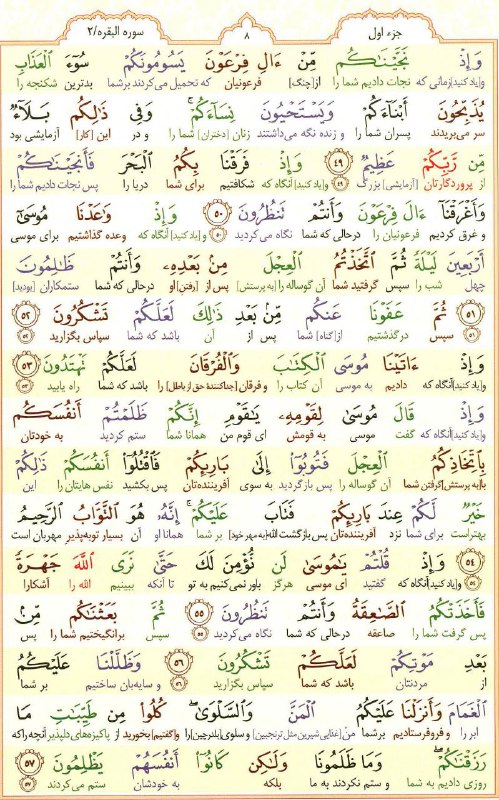 جزء اول ۸ سوره البقره/۲
وَإِذْ نَجَّيْنَٰكُم مِّنْ ءَالِ فِرْعَوْنَ يَسُومُونَكُمْ سُوٓءَ ٱلْعَذَابِ
و[یاد کنید]زمانی که نجات دادیم شما را از[چنگ] فرعونیان که تحمیل می‌کردند برشما بدترین شکنجه را
يُذَبِّحُونَ أَبْنَآءَكُمْ وَيَسْتَحْيُونَ نِسَآءَكُمْ ۚ وَفِى ذَٰلِكُم بَلَآءٌ
سر می‌بریدند پسران شما را و زنده نگه می‌داشتند زنان [دختران] شما را و در این [کار] آزمایشی بود
مِّن رَّبِّكُمْ عَظِيمٌ ۴۹ وَإِذْ فَرَقْنَا بِكُمُ ٱلْبَحْرَ فَأَنجَيْنَٰكُمْ
از پروردگارتان [آزمایشی] بزرگ ۴۹ و[یاد کنید] آنگاه که شکافتیم برای شما دریا را پس نجات دادیم شما را
وَأَغْرَقْنَآ ءَالَ فِرْعَوْنَ وَأَنتُمْ تَنظُرُونَ ۵۰ وَإِذْ وَٰعَدْنَا مُوسَىٰٓ
و غرق کردیم فرعونیان را درحالی که شما نگاه می‌کردید ۵۰ و[یاد کنید] آنگاه که وعده گذاشتیم برای موسی
أَرْبَعِينَ لَيْلَةً ثُمَّ ٱتَّخَذْتُمُ ٱلْعِجْلَ مِنۢ بَعْدِهِۦ وَأَنتُمْ ظَٰلِمُونَ
چهل شب را سپس گرفتید شما آن گوساله را [به پرستش] پس از [رفتن] او درحالی که شما ستمکاران [بودید]
۵۱ ثُمَّ عَفَوْنَا عَنكُم مِّنۢ بَعْدِ ذَٰلِكَ لَعَلَّكُمْ تَشْكُرُونَ ۵۲
۵۱ سپس درگذشتیم از[گناه] شما پس از آن باشد که شما سپاس بگزارید ۵۲
وَإِذْ ءَاتَيْنَا مُوسَى ٱلْكِتَٰبَ وَٱلْفُرْقَانَ لَعَلَّكُمْ تَهْتَدُونَ ۵۳
و[یاد کنید]آنگاه که دادیم به موسی آن کتاب را و فرقان [جداکنندهٔ حق از باطل] را باشد که شما راه یابید ۵۳
وَإِذْ قَالَ مُوسَىٰ لِقَوْمِهِۦ يَٰقَوْمِ إِنَّكُمْ ظَلَمْتُمْ أَنفُسَكُم
و[یاد کنید]آنگاه که گفت موسی به قومش ای قوم من همانا شما ستم کردید به خودتان
بِٱتِّخَاذِكُمُ ٱلْعِجْلَ فَتُوبُوٓا۟ إِلَىٰ بَارِئِكُمْ فَٱقْتُلُوٓا۟ أَنفُسَكُمْ ذَٰلِكُمْ
با[به پرستش]گرفتن شما آن گوساله را پس بازگردید به سوی آفریننده‌تان پس بکشید نفس هایتان را این
خَيْرٌ لَّكُمْ عِندَ بَارِئِكُمْ فَتَابَ عَلَيْكُمْ ۚ إِنَّهُۥ هُوَ ٱلتَّوَّابُ ٱلرَّحِيمُ
بهتراست برای شما نزد آفریننده‌تان پس بازگشت الله[به مهر خود] بر شما همانا او آن بسیار توبه‌پذیر مهربان است
۵۴ وَإِذْ قُلْتُمْ يَٰمُوسَىٰ لَن نُّؤْمِنَ لَكَ حَتَّىٰ نَرَى ٱللَّهَ جَهْرَةً
۵۴ و[یاد کنید]آنگاه که گفتید ای موسی هرگز باور نمی‌کنیم به تو تا آنکه ببینیم الله را آشکارا
فَأَخَذَتْكُمُ ٱلصَّٰعِقَةُ وَأَنتُمْ تَنظُرُونَ ۵۵ ثُمَّ بَعَثْنَٰكُم مِّنۢ
پس گرفت شما را صاعقه درحالی که شما نگاه می‌کردید ۵۵ سپس برانگیختیم شما را پس
بَعْدِ مَوْتِكُمْ لَعَلَّكُمْ تَشْكُرُونَ ۵۶ وَظَلَّلْنَا عَلَيْكُمُ
از مردنتان باشد که شما سپاس بگزارید ۵۶ و سایه‌بان ساختیم بر شما
ٱلْغَمَامَ وَأَنزَلْنَا عَلَيْكُمُ ٱلْمَنَّ وَٱلسَّلْوَىٰ ۖ كُلُوا۟ مِن طَيِّبَٰتِ مَا
ابر را و فروفرستادیم برشما من[غذایی شیرین مثل ترنجبین] و سلوی[بلدرچین]را و[گفتیم] بخورید از پاکیزه‌های دلپذیر آنچه راکه
رَزَقْنَٰكُمْ ۖ وَمَا ظَلَمُونَا وَلَٰكِن كَانُوٓا۟ أَنفُسَهُمْ يَظْلِمُونَ ۵۷
روزی دادیم به شما و ستم نکردند به ما بلکه به خودشان ستم می‌کردند ۵۷